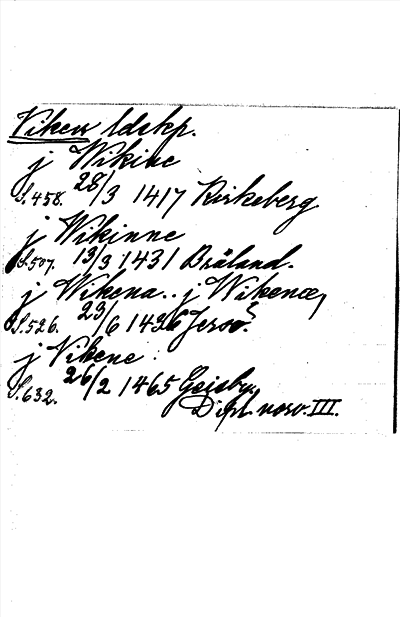 Viken ldskp.
j Wikine
S. 458. 28/3 1417 Kirkeberg
j Wikinne
S. 507. 13/3 1431 Bräland.
j Wikena.. j Wikenæ,
S. 526. 23/6 1436 Jersö?
j Vikene :
S. 632. 26/2 1465 Geisby.
Dipl. norv. III.